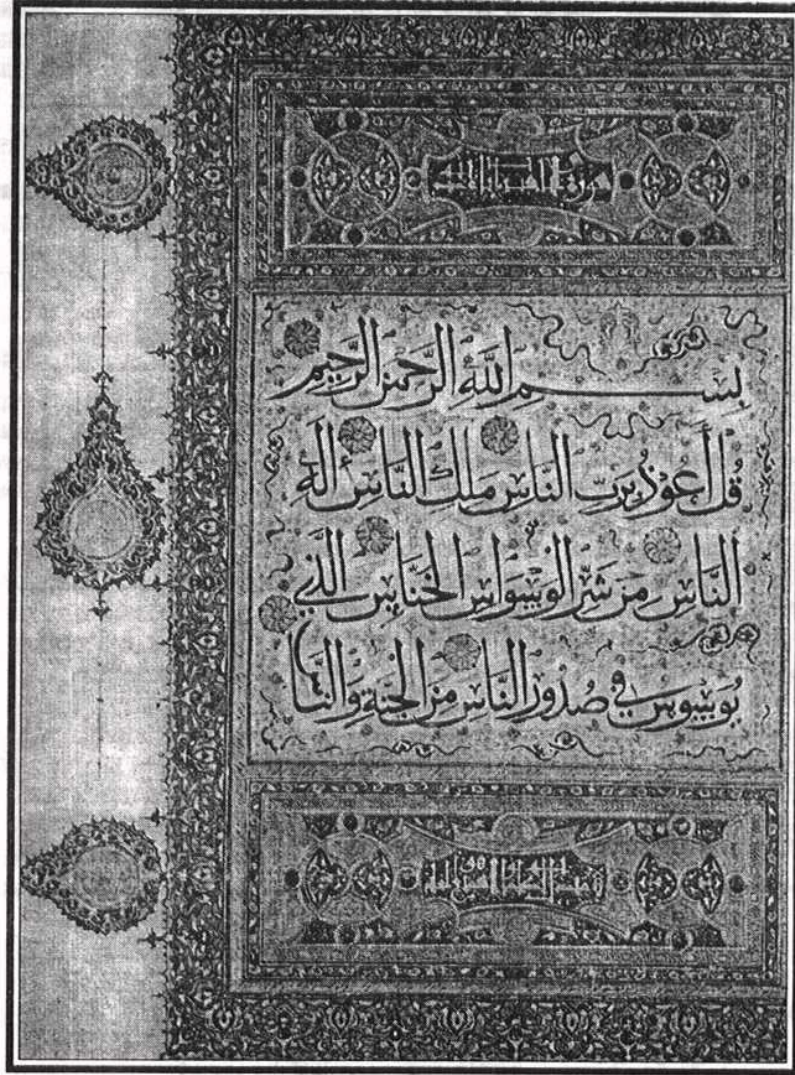 بِسْمِ اللَّهِ الرَّحْمَنِ الرَّحِيمِ
قُلْ أَعُوذُ بِرَبِّ النَّاسِ مَلِكِ النَّاسِ إِلَهِ
النَّاسِ مِنْ شَرِّ الْوَسْوَاسِ الْخَنَّاسِ الَّذِي
يُوَسْوِسُ فِي صُدُورِ النَّاسِ مِنَ الْجِنَّةِ وَالنَّاسِ